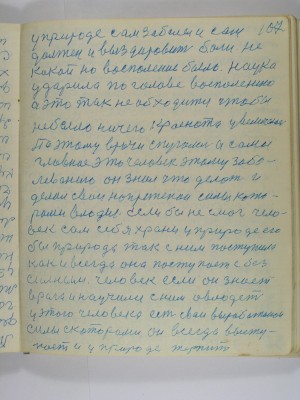 у природе сам заболел и сам 107
должен и выздоровить боли не
какой но восполение было. Наука
ударила по голове восполению
а это так необходимо чтобы
небыло ничего краснота увеличен
Поэтому врачи спугали а самое
главное это человек этому забо-
леванию он знал что делот и
делал свои напряженой силы кото-
рами владел. Если бы не смог чело-
век сам себя храни у природе его
бы природа так с ним поступили
как и всегда она поступает с без
сильным. Человек если он знает
врага и научили с ним овлодет
у этого человека ест свои выработоной
силы скоторами он всегда высту-
пает и у природе жить